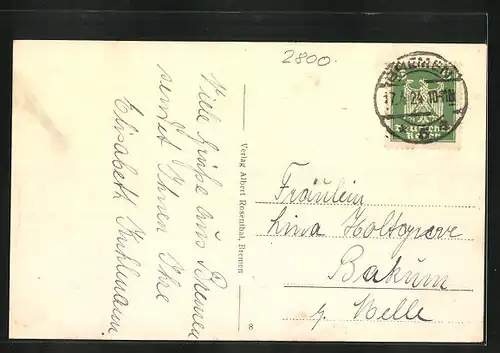 2800.
Viele Grüße aus Bremen
sendet Ihnen Ihre
Elisabeth Kuhlmann
Verlag Albert Rosenthal, Bremen
8
BREMEN
Deutsches
Reich
Fräulein
Lina Holtgreve
Bakum
p. Melle